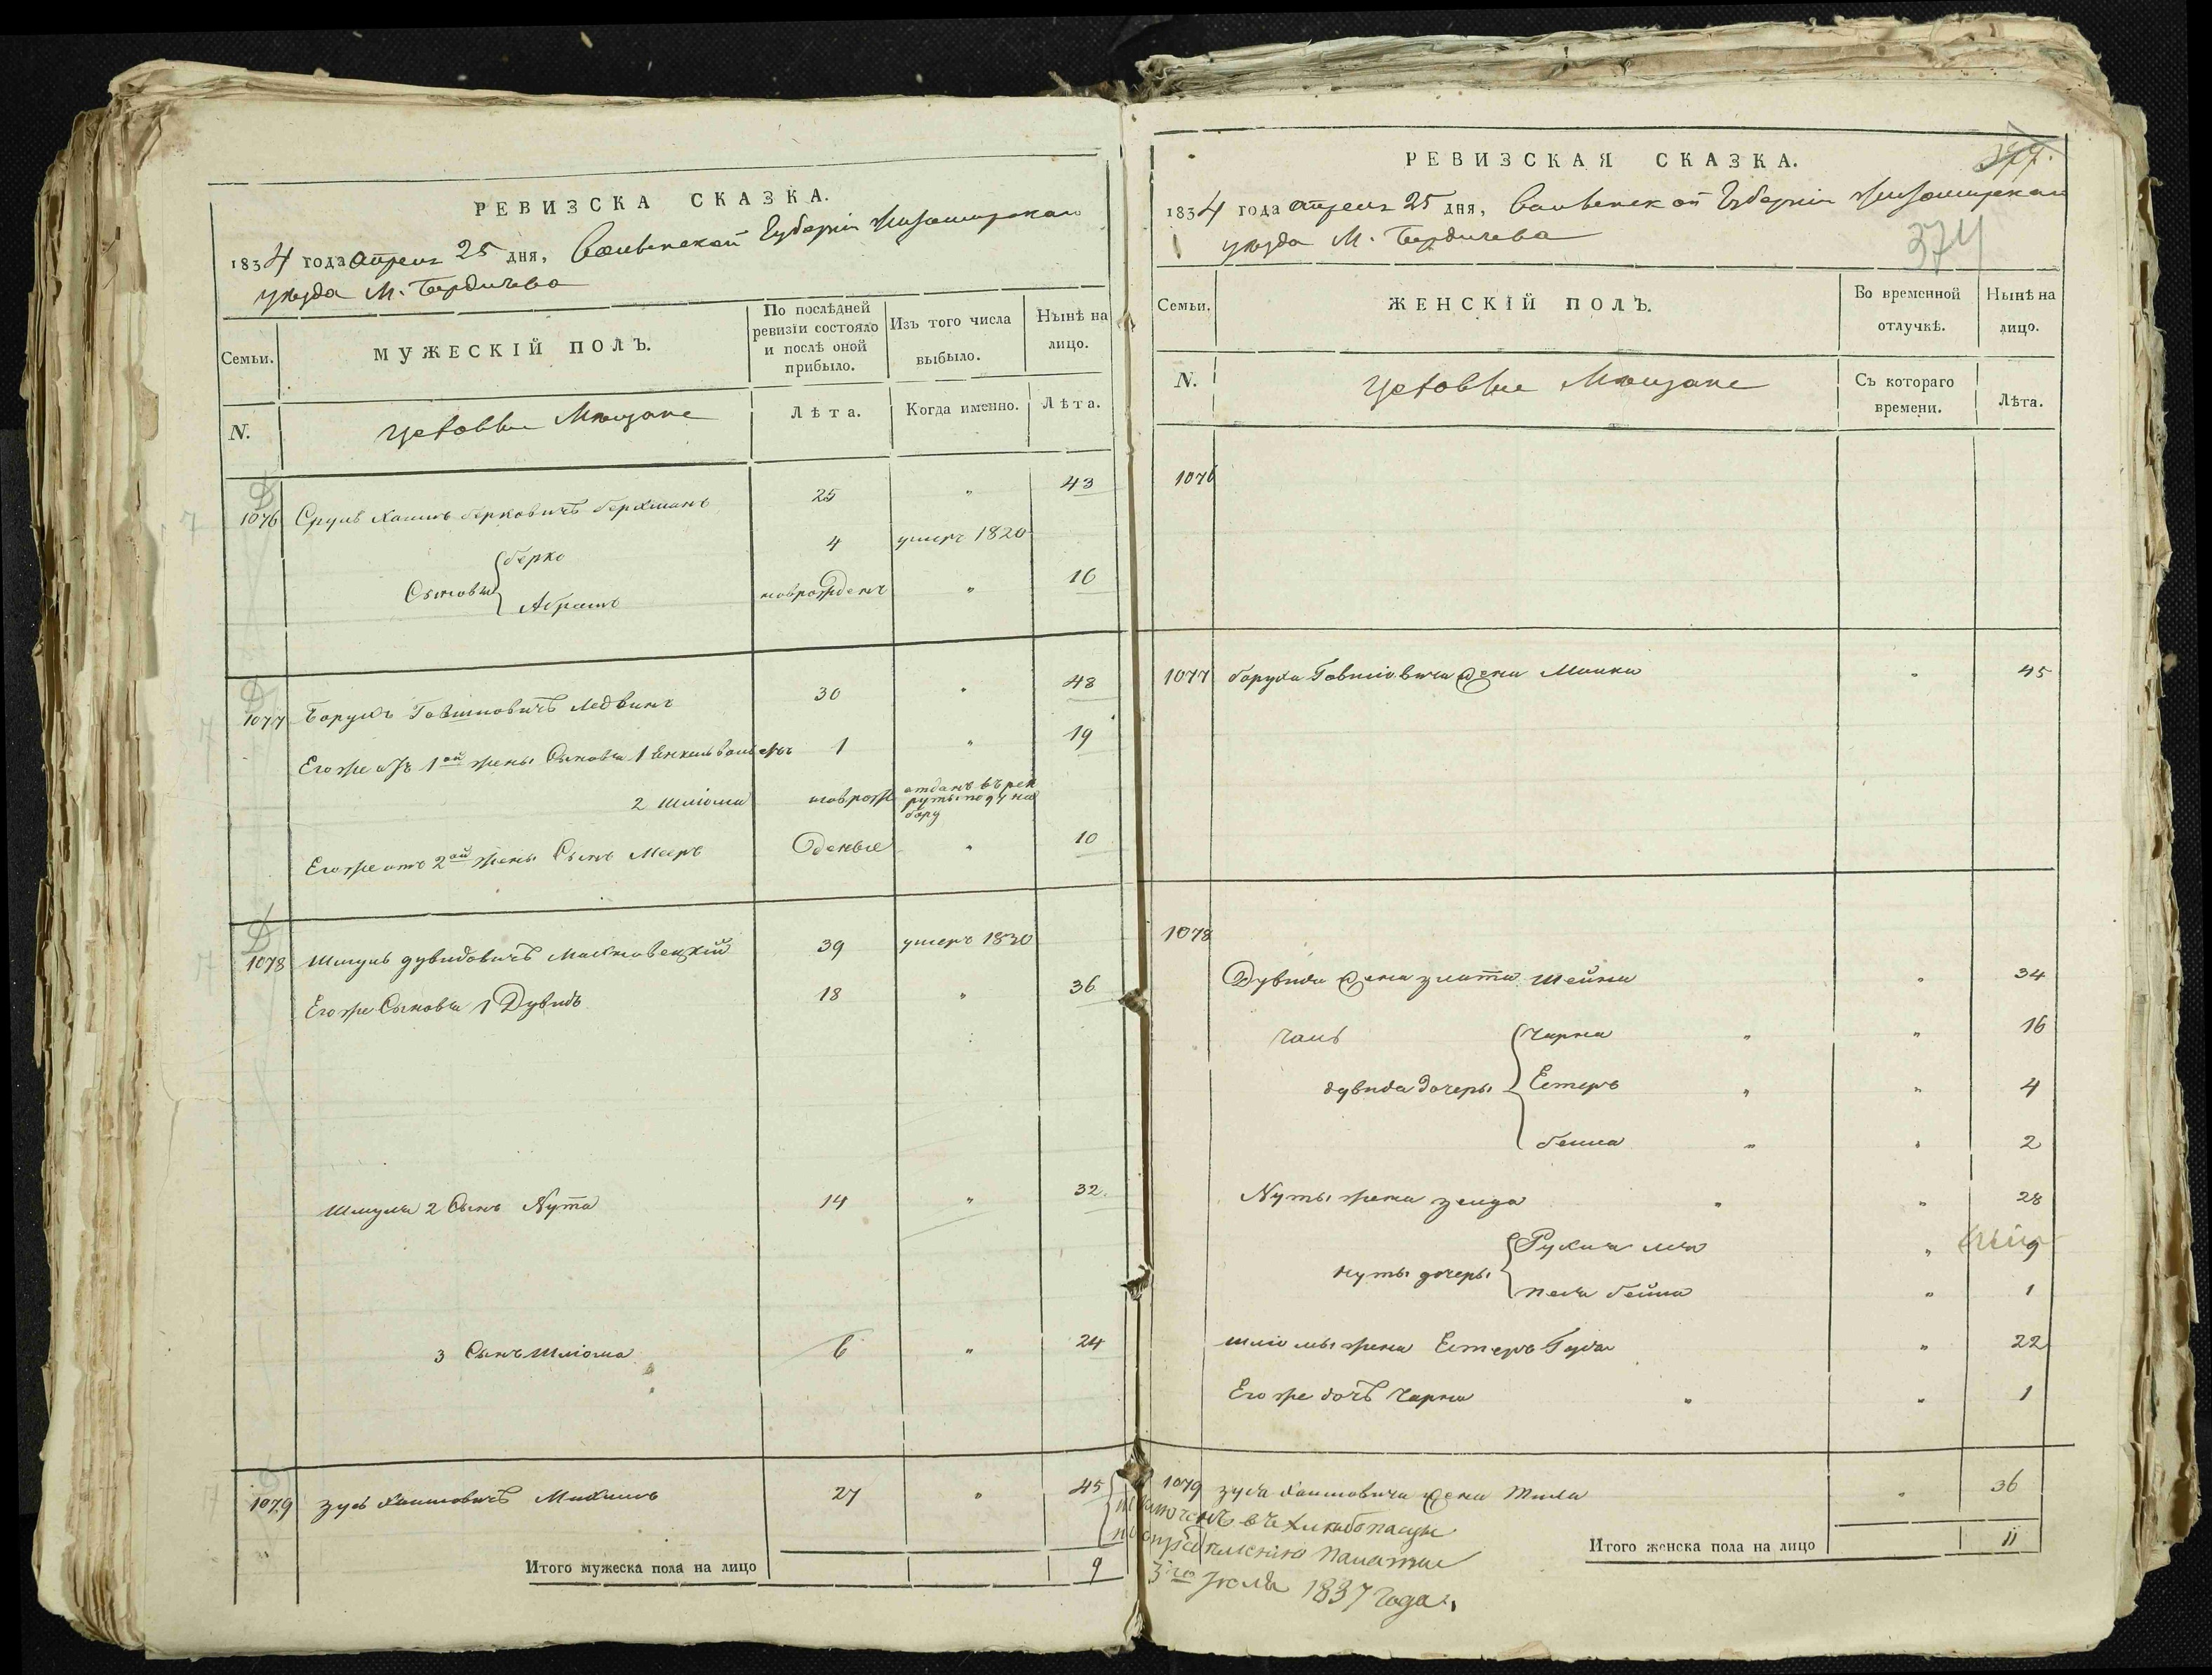 РЕВИЗСКА СКАЗКА.
1834 года Апреля 25 дня, Волынской Губерніи Житомирскаго
уезда М. Бердичева
Семьи.
МУЖЕСКІЙ ПОЛЪ.
По послѣдней ревизіи состояло и послѣ оной прибыло.
Изъ того числа выбыло.
Нынѣ на лицо.
N.
Мещане
Лѣта.
Когда именно.
Лѣта.
1076 Сруль Хаимъ Берковичъ Берхманъ 25 " 43
Сыновья
Берко 4 умеръ 1820
Абрамъ новрожденъ " 16
1077 Борухъ Говшиовичъ Ледвинъ 30 " 48
Его же изъ 1ой жены Сыновья 1 1 " 19
2 Шліома новрож отданъ въ рек
руты по 94 на
бору
Его же отъ 2ой жены Сынъ Мееръ деные " 10
1078 Шмуль Дувидовичъ 39 умеръ 1830
Его же Сыновья 1 Дувидъ 18 " 36
Шмуля 2 Сынъ Нута 14 " 32.
3 Сынъ Шліома 6 " 24
1079 Зусь Хаимовичъ 27 " 45
Итого мужеска пола на лицо 9
РЕВИЗСКАЯ СКАЗКА.
374
1834 года Апреля 25 дня, Волынской Губерніи Житомирскаго
уезда М. Бердичева
Семьи.
ЖЕНСКІЙ ПОЛЪ.
Во временной отлучкѣ.
Нынѣ на лицо.
N.
Мещане
Съ котораго времени.
Лѣта.
1076
1077 Боруха Говшіовича жена Малка " 45
1078
Дувида жена Злата Шейна " 34
Чарна " " 16
дувида дочеры Естеръ " " 4
Бейла " " 2
Нуты жена " " 28
нуты дочеры
Рухля Лея " 9
Песя Бейла " 1
Шліомы жена Естеръ Гуда " 22
Его же дочъ Чарна " " 1
1079 Зуся Хаимовича жена " 36
палаты
3го Іюля 1837 года.
Итого женска пола на лицо 11